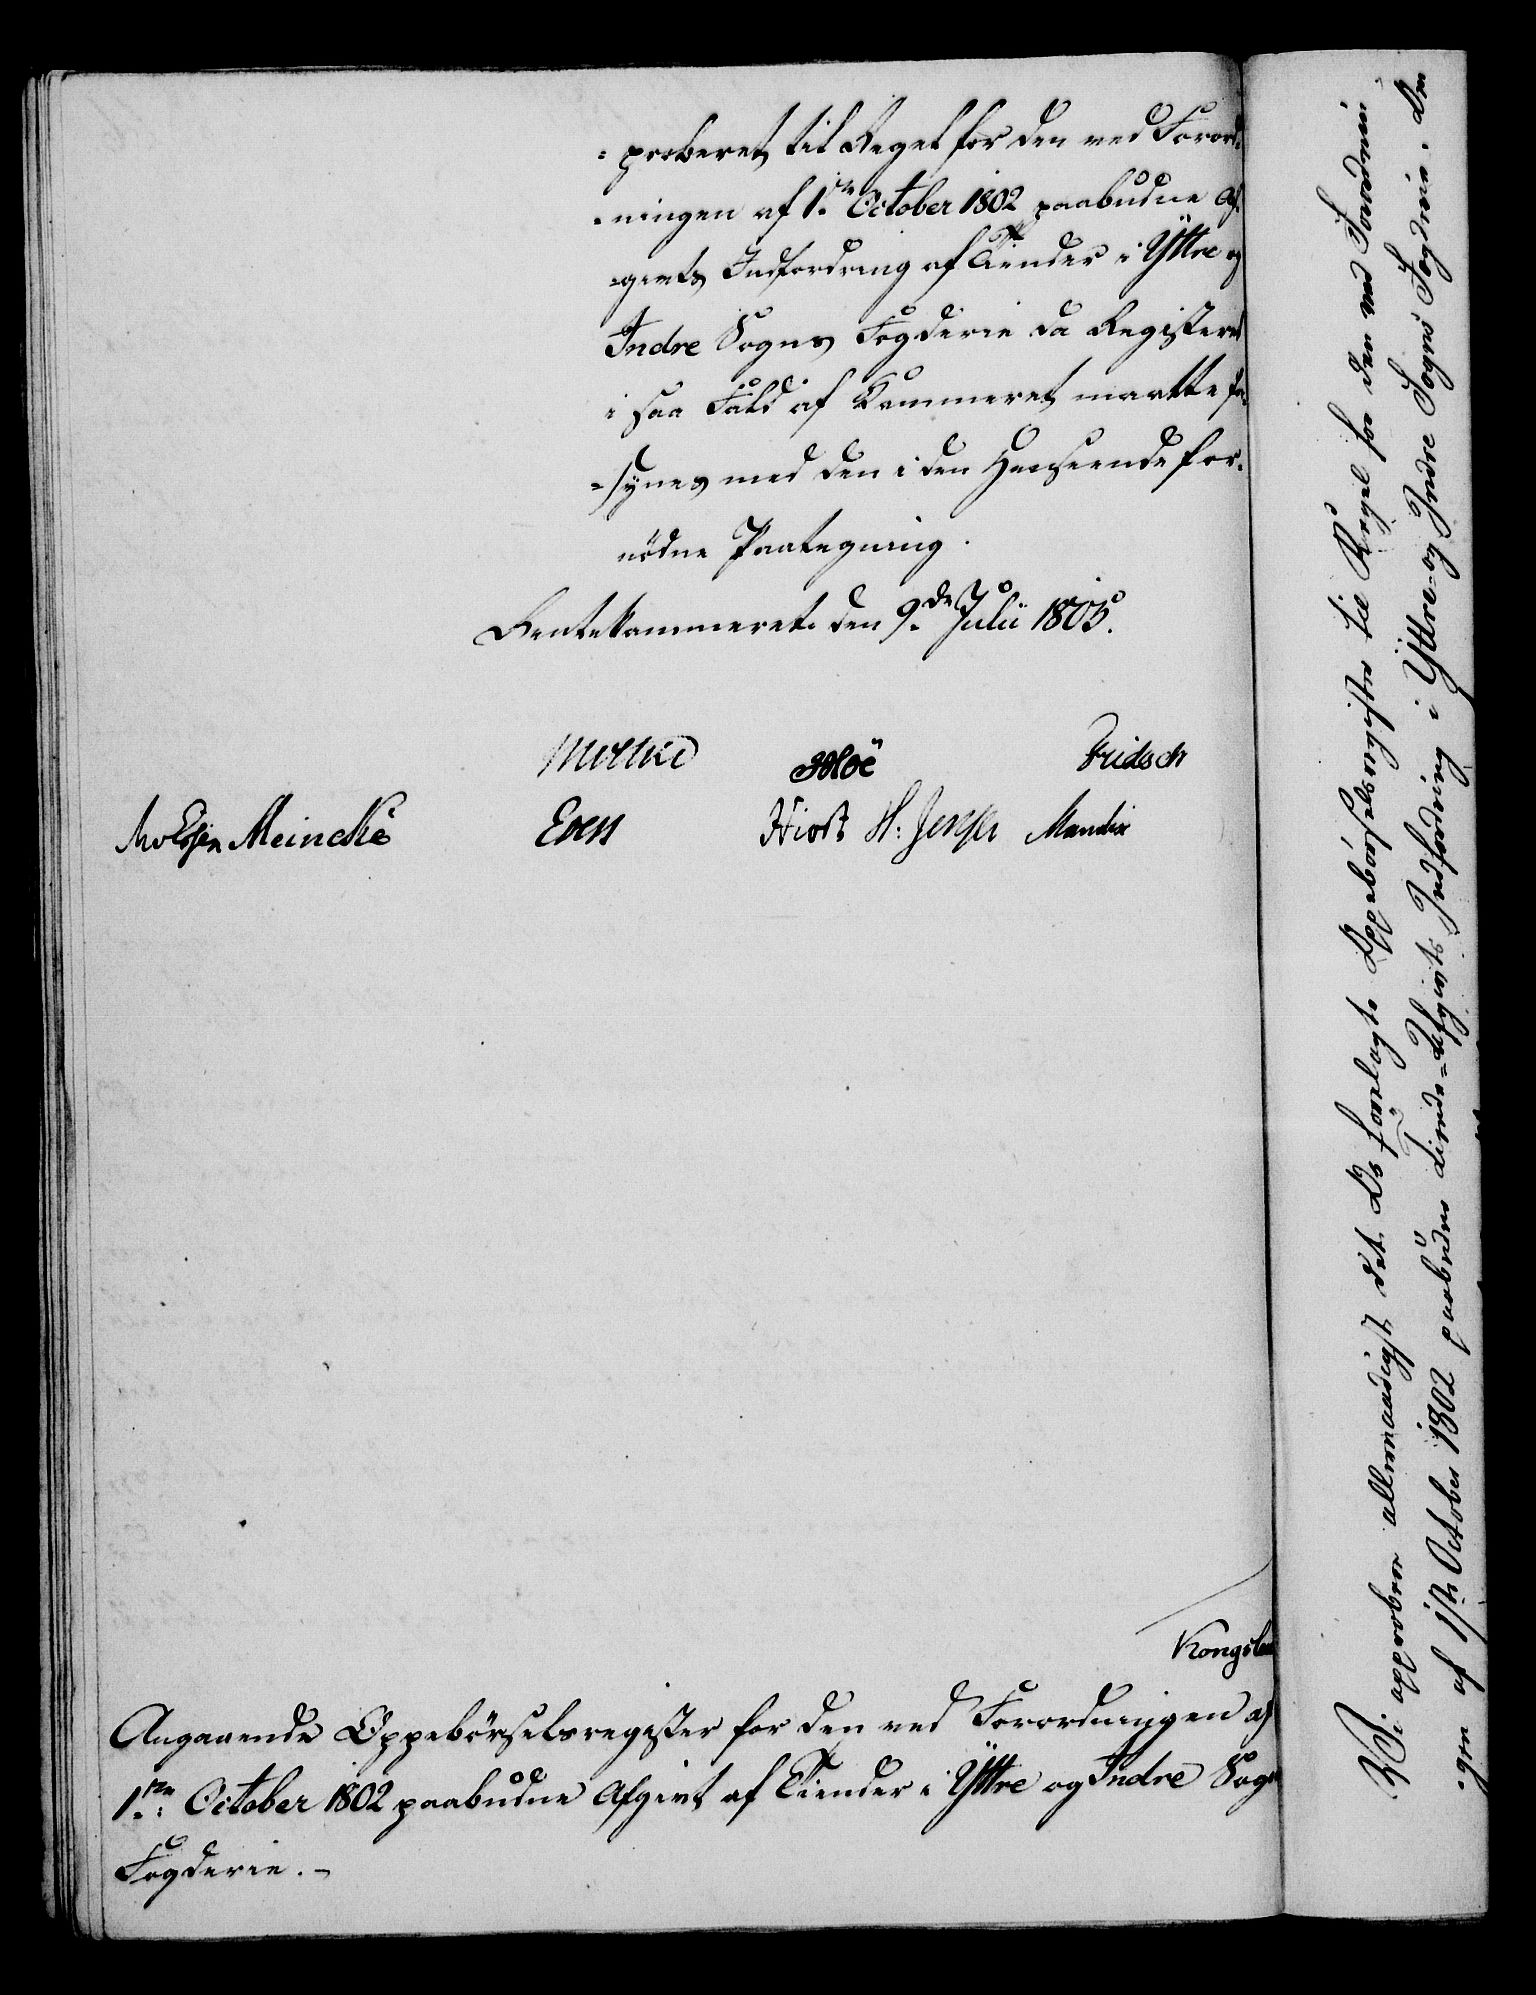 =proberet til Regel for den ved Forord-
=ningen af 1ste October 1802 paabudne Af-
=givts Indfordring af Tiender i Ÿttre og
Indre Sogns Fogderie da Registeret
i saa Fald af Kammeret maatte for-
=sÿnes med den i den Henseende for-
nödne Paategning.
Rentekammeret den 9de Julii 1805.
Moltke Hoë Fridsch
Meincke Everss Hiort H: Jensen Mandix
Kongsberg
Angaaende Oppebörselsregister for den ved Forordningen af
1ste October 1802 paabudne Afgivt af Tiender i Ÿttre og Indre Sogns
Fogderie.-
Vi approbere allernaadigst det Os forelagte Oppebörselsregister til Regel for den ved Forordnin-
gen af 1ste October 1802 paabudne Tiende-Afgivts Indfordring i Ÿttre- og Indre Sogns Fogderie. Den